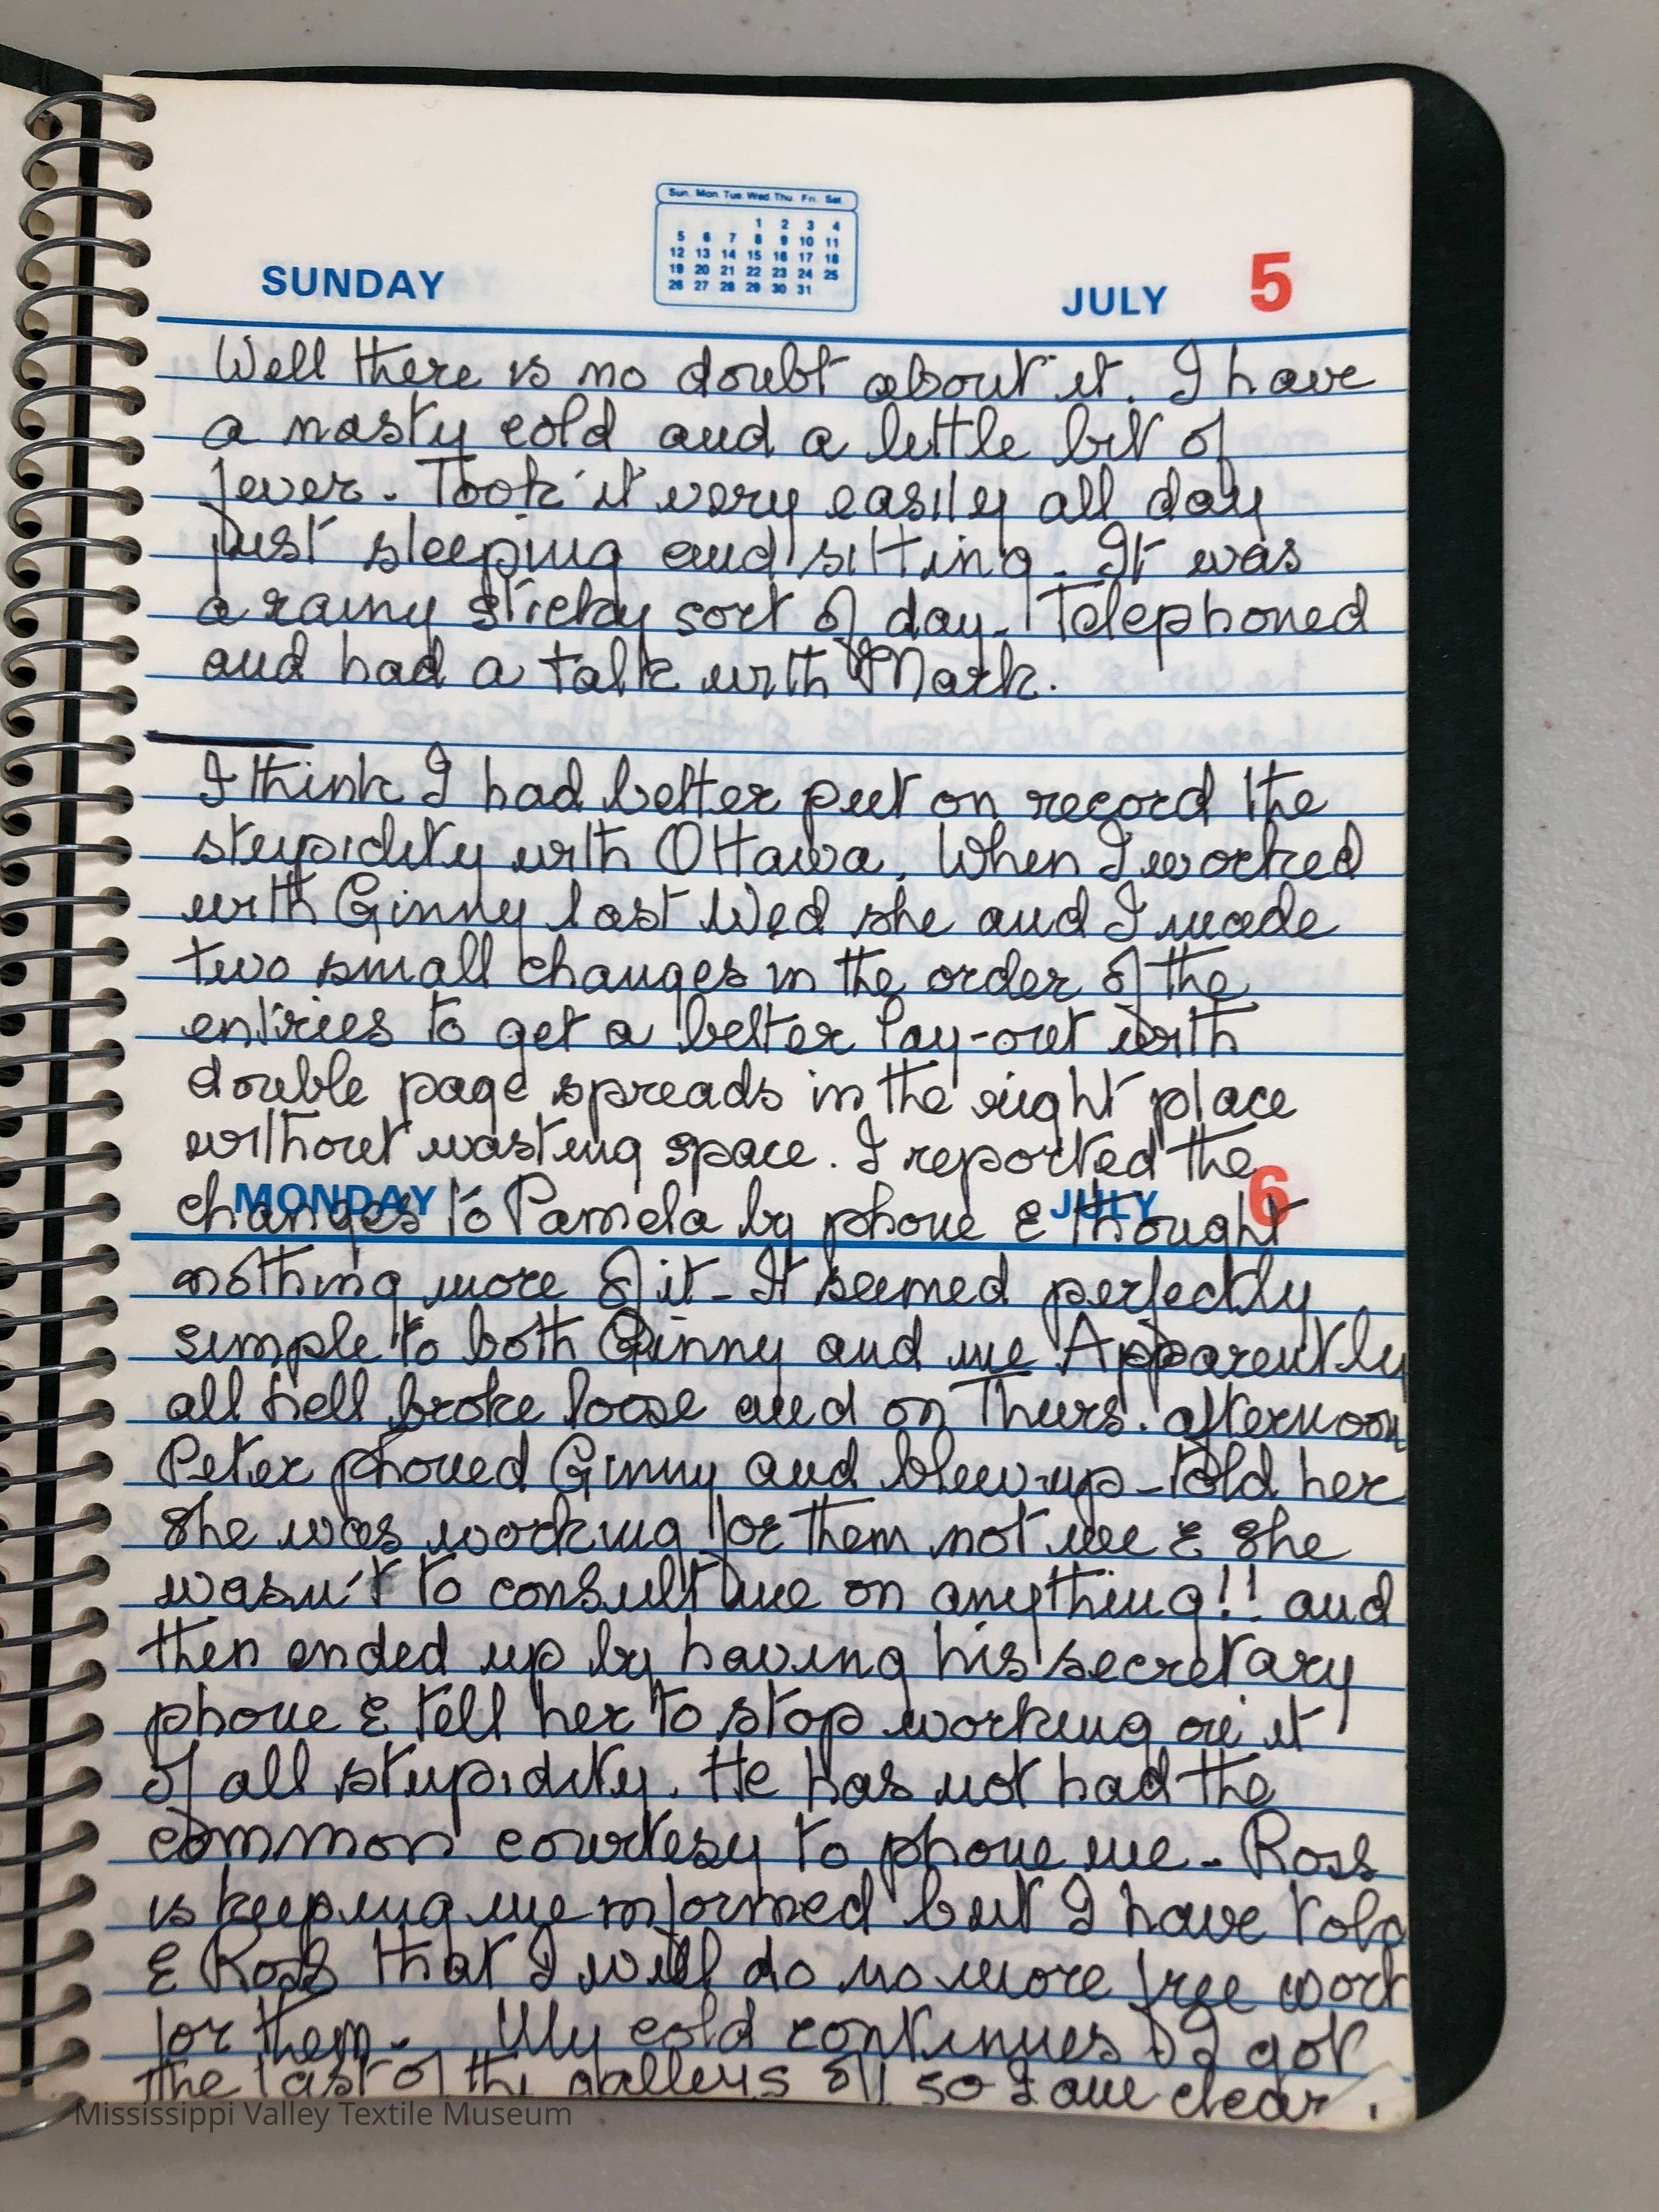 Sun. Mon. Tue. Wed. Thu. Fri. Sat.
1 2 3 4
5 6 7 8 9 10 11
12 13 14 15 16 17 18
19 20 21 22 23 24 25
26 27 28 29 30 31
SUNDAY JULY 5
Well there is no doubt about it. I have
a nasty cold and a little bit of
fever. Took it very easily all day
just sleeping and sitting. It was
a rainy sticky sort of day. Telephoned
and had a talk with Mark.
I think I had better put on record the
stupidity with Ottawa. When I worked
with Ginny last Wed she and I made
two small changes in the order of the
entries to get a better lay-out with
double page spreads in the right place
without wasting space. I reported the
MONDAY JULY 6
changes to Pamela by phone & thought
nothing more of it - It seemed perfectly
simple to both Ginny and me Apparently
all hell broke loose and on Thurs. afternoon
Peter phoned Ginny and blew-up - told her
she was working for them not me & she
wasn't to consult me on anything!! and
then ended up by having his secretary
phone & tell her to stop working on it
of all stupidity. He has not had the
common courtesy to phone me - Ross
is keeping me informed but I have told
& Ross that I will do no more free work
for them. My cold continues I got
the last of the galleys off so I am clear.
Mississippi Valley Textile Museum